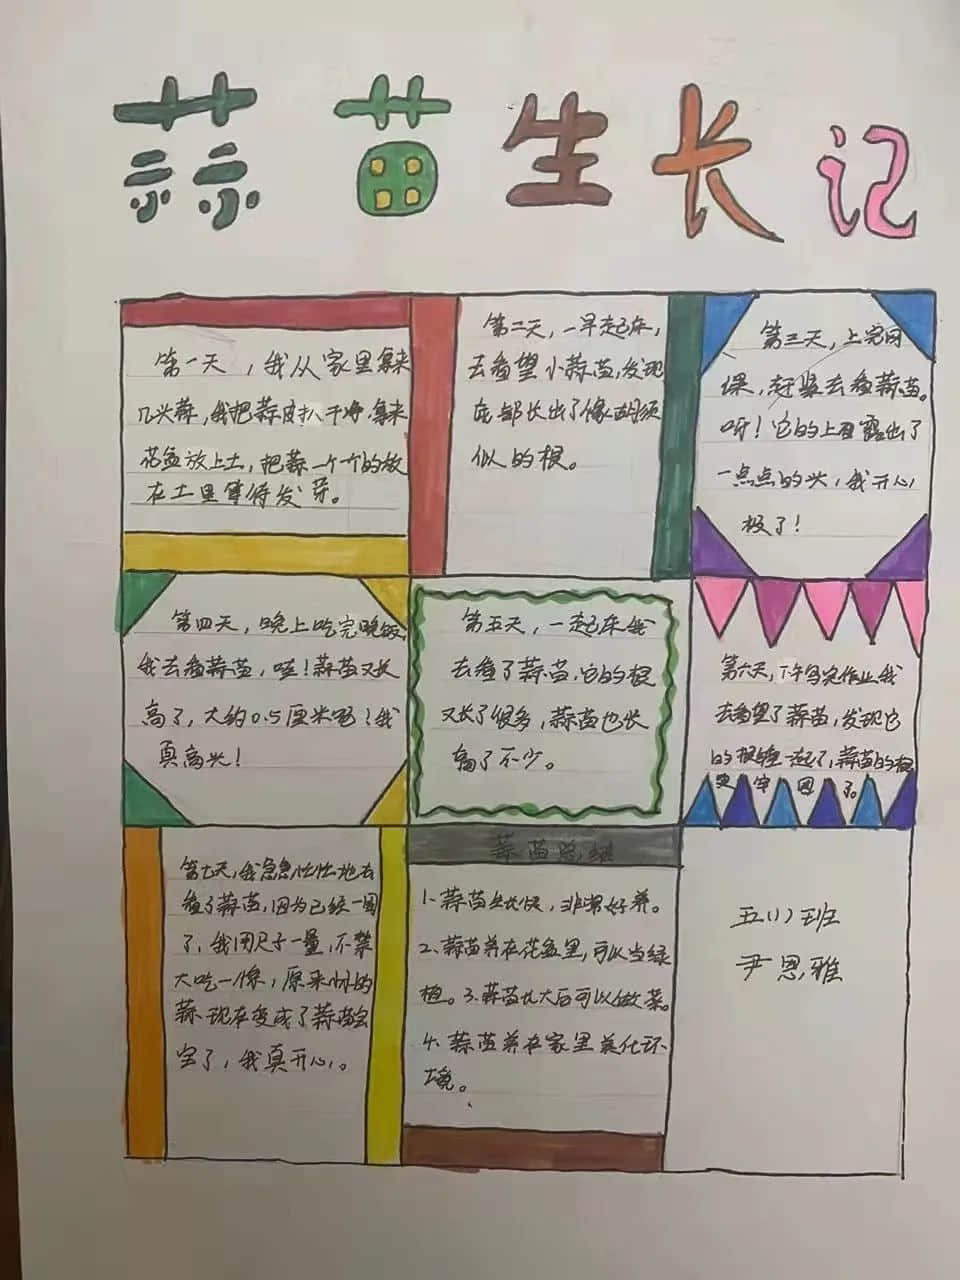 蒜苗生长记
第一天，我从家里拿来
几头蒜，我把蒜皮扒干净，拿来
花盆放上土，把蒜一个个的放
在土里等待发芽。
第二天，一早起床，
去看望小蒜苗，发现
底部长出了像胡须
似的根。
第三天，上完网
课，赶紧去看蒜苗。
呀！它的上面露出了
一点点的头，我开心
极了！
第四天，晚上吃完晚饭
我去看蒜苗，哇！蒜苗又长
高了，大约0.5厘米呢！我
真高兴！
第五天，一起床我
去看了蒜苗，它的根
又长了很多，蒜苗也长
高了不少。
第六天，下午写完作业我
去看望了蒜苗，发现它
的根缠一起了，蒜苗的根
变牢固了。
第七天，我急急忙忙地去
看了蒜苗，因为已经一周
了，我用尺子一量，不禁
大吃一惊，原来小小的
蒜现在变成了蒜苗宝
宝了，我真开心。
蒜苗总结
1、蒜苗生长快，非常好养。
2、蒜苗养在花盆里，可以当绿
植。3、蒜苗长大后可以做菜。
4、蒜苗养在家里美化环
境。
五(1)班
尹恩雅